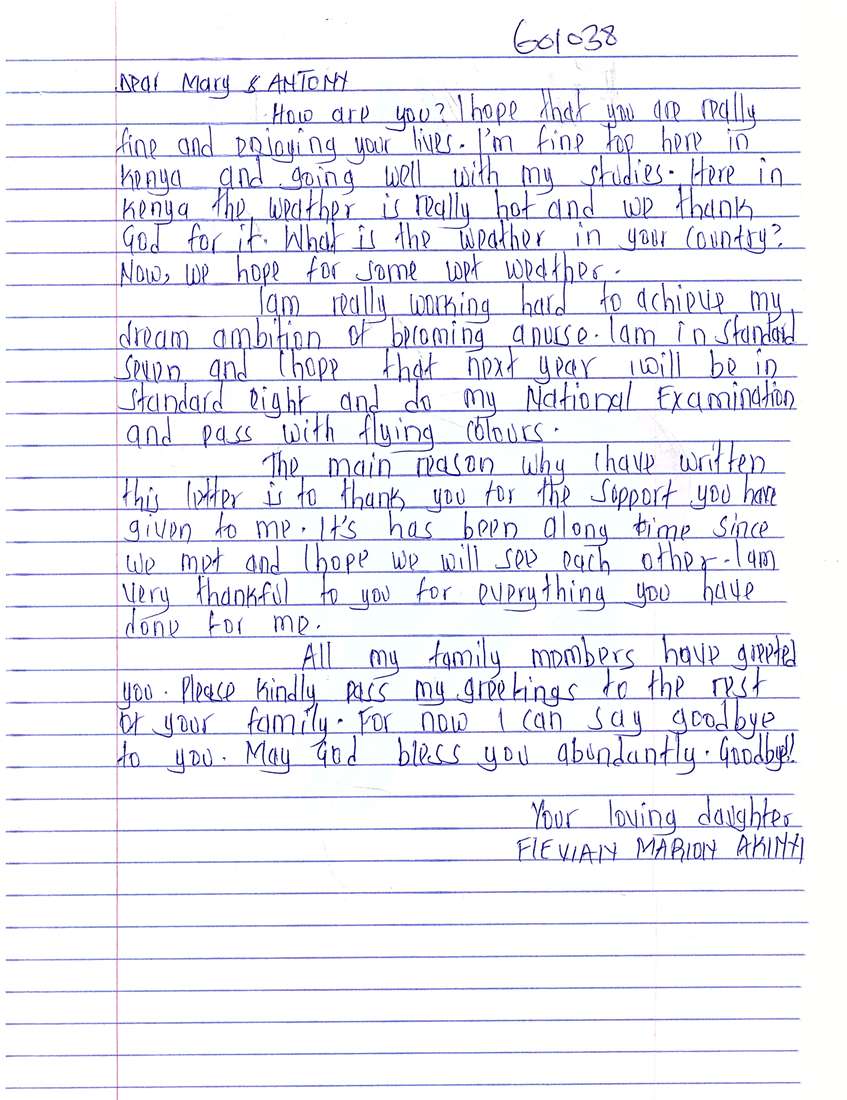 601038
Dear Mary & ANTONY
How are you? I hope that you are really
fine and enjoying your lives. I'm fine too here in
Kenya and going well with my studies. Here in
Kenya the weather is really hot and we thank
God for it. What is the weather in your country?
Now, we hope for some wet weather.
Iam really working hard to achieve my
dream ambition of becoming anurse. Iam in Standard
Seven and I hope that next year iwill be in
Standard eight and do my National Examination
and pass with flying colours.
The main reason why Ihave written
this letter is to thank you for the support you have
given to me. It's has been along time since
we met and I hope we will see each other. Iam
very thankful to you for everything you have
done for me.
All my family members have greeted
you. Please kindly pass my greetings to the rest
of your family. For now I can say goodbye
to you. May God bless you abundantly. Goodbye!!
Your loving daughter
FLEVIAN MARION AKINYI